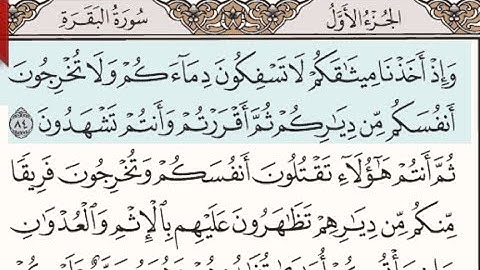 سُورَةُ البَقَرَةِ الجُزْءُ الأَوَّلُ
وَإِذْ أَخَذْنَا مِيثَٰقَكُمْ لَا تَسْفِكُونَ دِمَآءَكُمْ وَلَا تُخْرِجُونَ
أَنفُسَكُم مِّن دِيَٰرِكُمْ ثُمَّ أَقْرَرْتُمْ وَأَنتُمْ تَشْهَدُونَ ٨٤
ثُمَّ أَنتُمْ هَٰٓؤُلَآءِ تَقْتُلُونَ أَنفُسَكُمْ وَتُخْرِجُونَ فَرِيقًا
مِّنكُم مِّن دِيَٰرِهِمْ تَظَٰهَرُونَ عَلَيْهِم بِٱلْإِثْمِ وَٱلْعُدْوَٰنِ